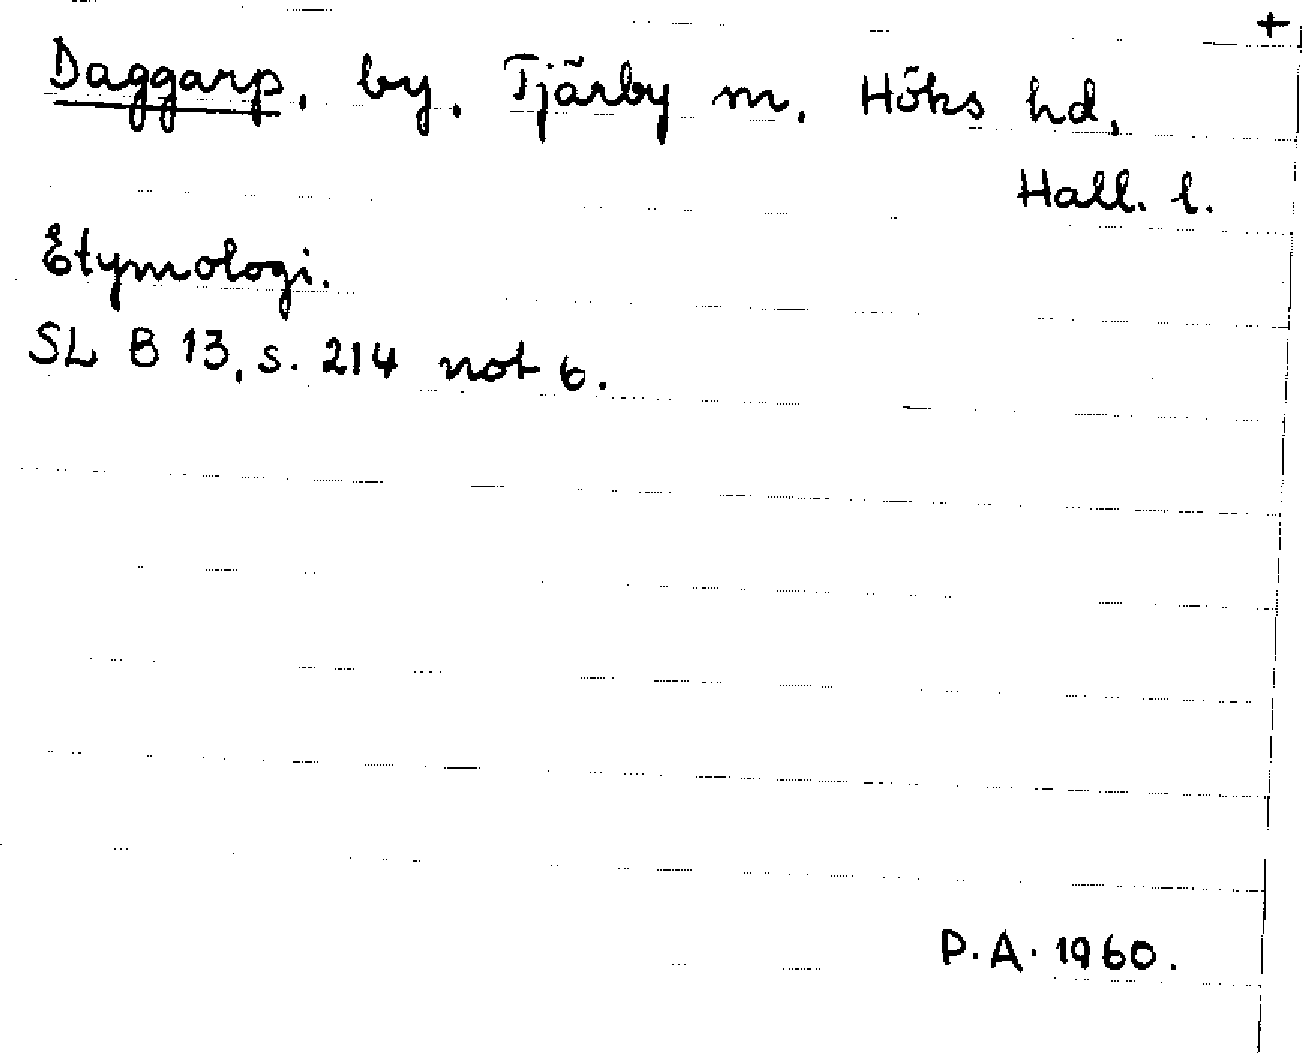 +
Daggarp, by, Tjärby sn, Höks hd,
Hall. l.
Etymologi.
SL B 13, s. 214 not 6.
P.A. 1960.